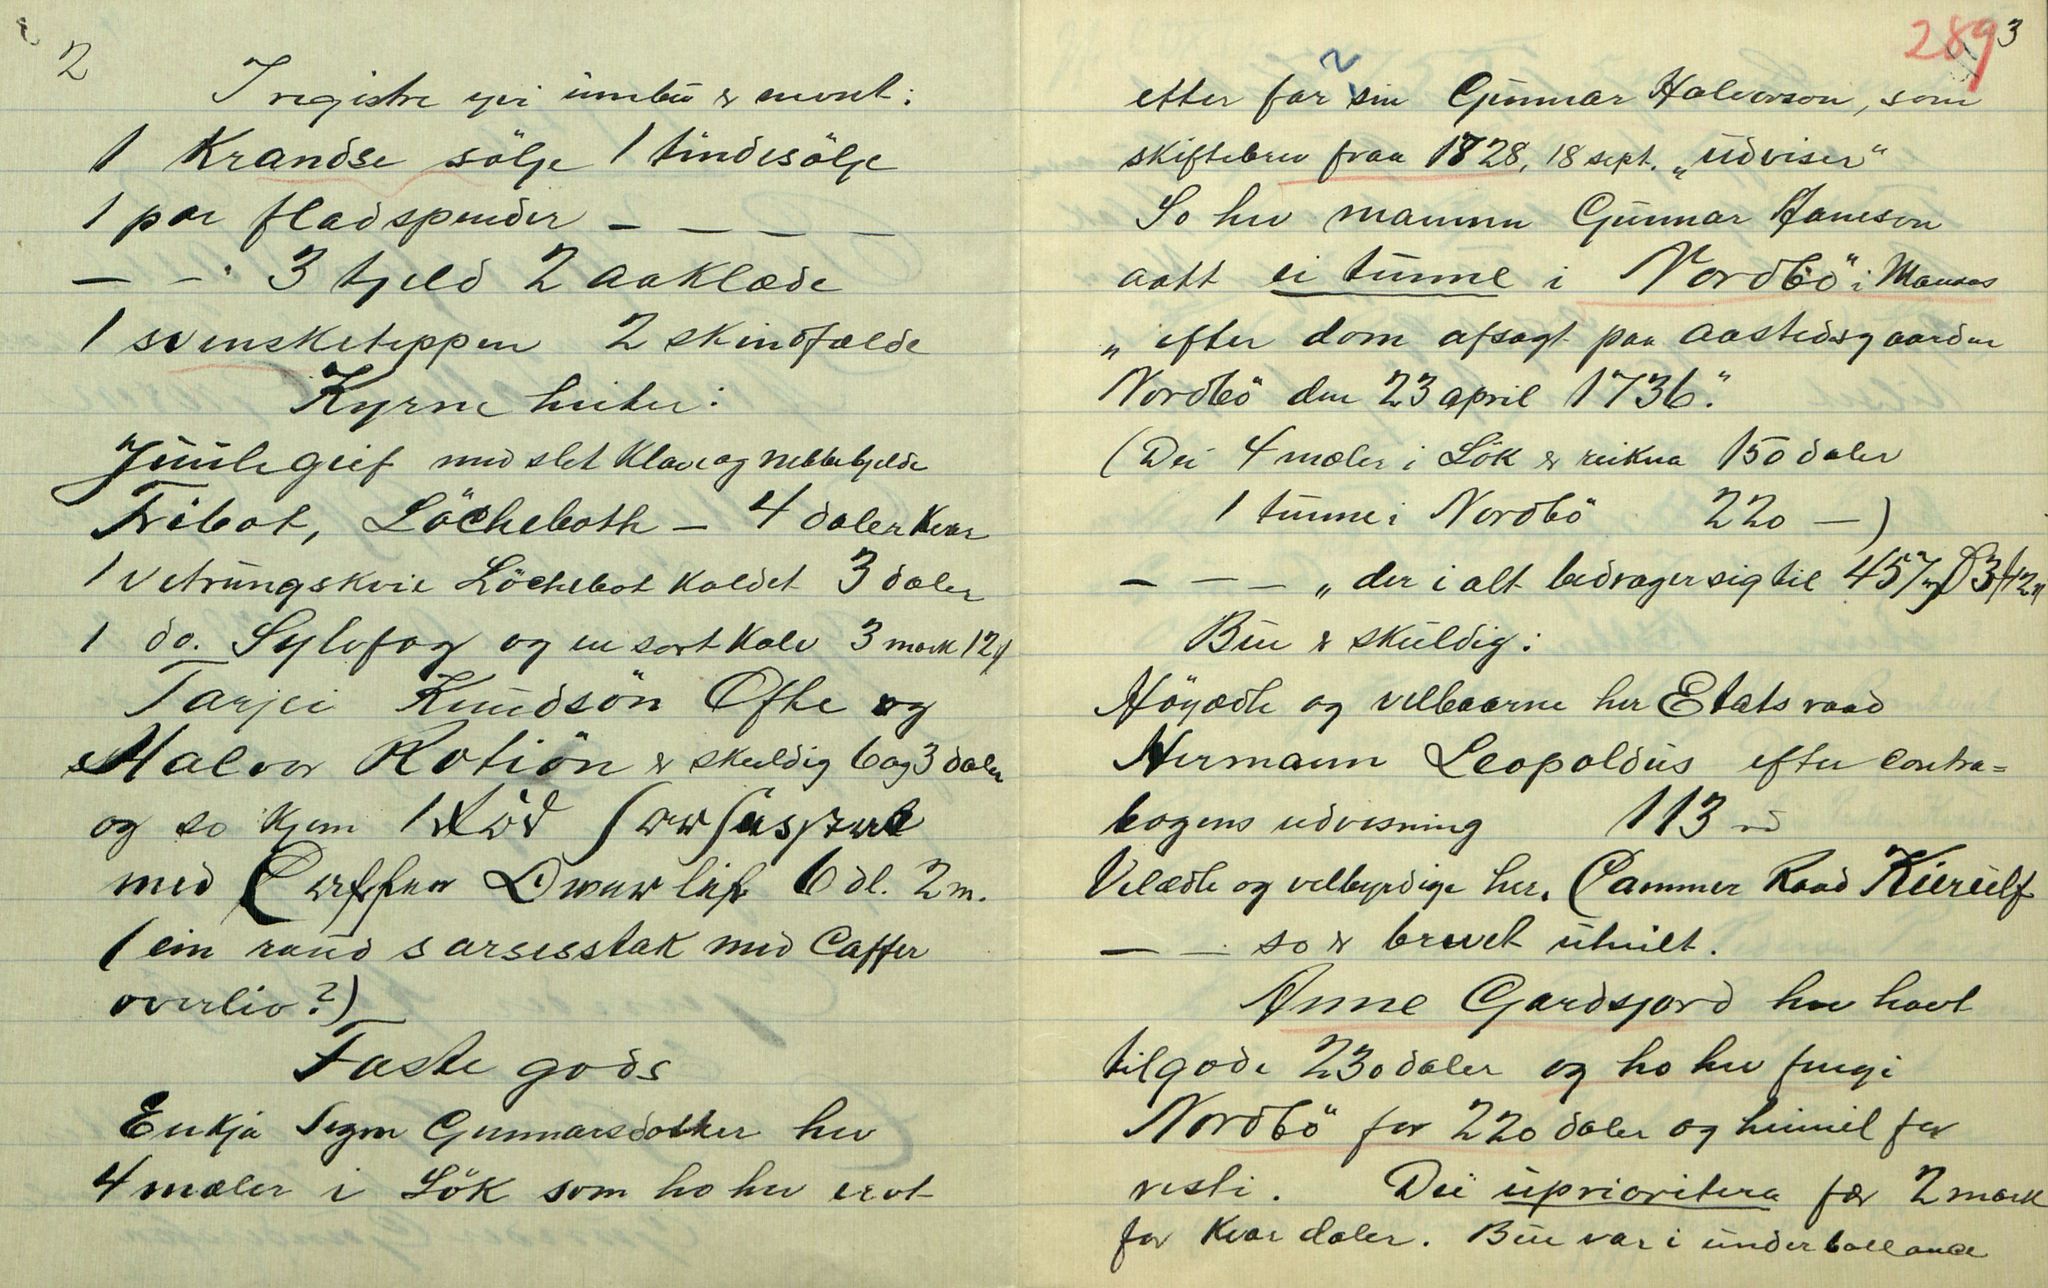 2
I registre yvi innbu er nemnt:
1 Krandse sölje 1 tindesölje
1 par fladspender – – – –
– – . 3 tjeld 2 aaklæde
1 svensketeppen 2 skindfælde
Kyrne heiter:
Juulegief med slet Klave og nebbebjelde
Tribot, Löcheboth – 4 daler kvar
1 vetrungskvie Löchebot kaldet 3 daler
1 do. Sylvfog og en sort kalv 3 mark 12 ß
Tarjei Knudsön Ofte og
Halvor Rotiön er skuldig 6 og 3 daler
og so kjem 1
med 6 dl. 2 m.
(ein raud sarsesstak med Caffer
overliv?)
Faste gods
Enkja Signe Gunnarsdotter hev
4 mæler i Lök som ho hev ervt
289 3
etter far sin Gunnar Halvorson, som
skiftebrev fraa 1728, 18 sept. „udviser“
So hev mannen Gunnar Hanson
aatt ei tunne i Nordbö i Mandas
„efter dom afsagt paa aastedsgaarden
Nordbö den 23 april 1736“.
(Dei 4 mæler i Lök er reikna 150 daler
1 tunne i Nordbö 220 –)
– – – „der i alt bedrager sig til 457 3 12
Bui er skuldig:
Höyædle og velbaarne her Etatsraad
Hermann Leopoldus efter contra=
bogens udvisning 113 rd
Velædle og velbyrdige her. Cammer Raad Kierulf
– – so er brevet utslit.
Anne Gardsjord hev havt
tilgode 230 daler og ho hev fengi
Nordbö for 220 daler og heimel for
resti. Dei uprioritera fær 2 mark
for kvar daler. Bui var i underballance